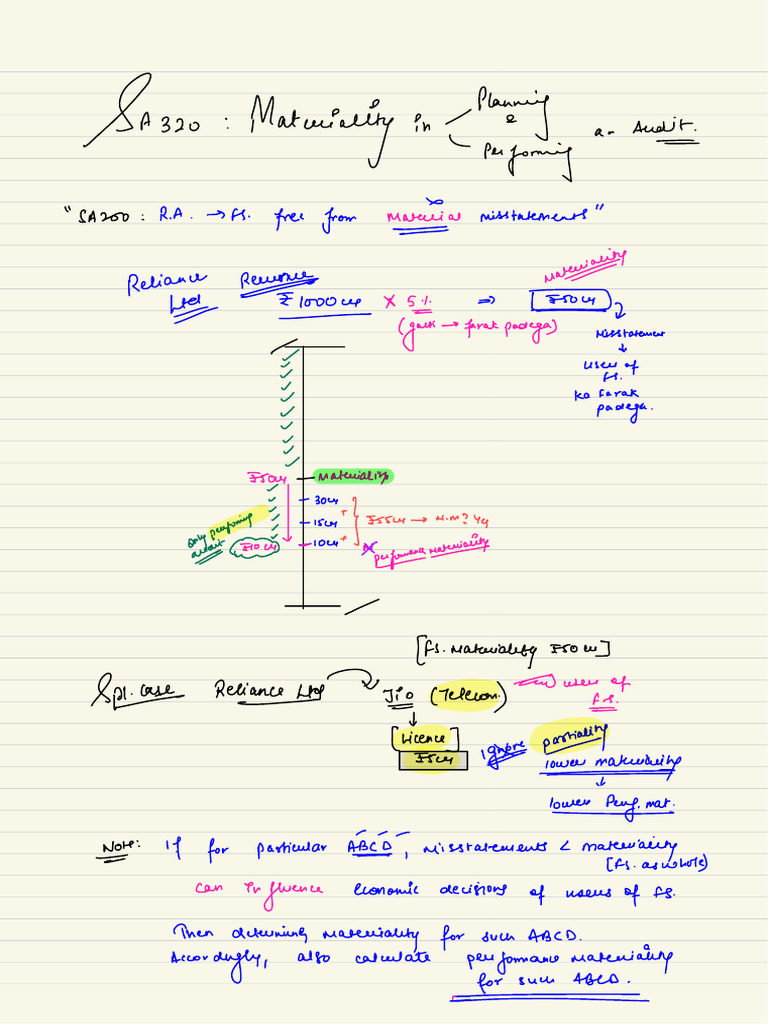 SA 320 : Materiality in Planning & Performing an Audit.
"SA200 : R.A. → FS. free from Material misstatements"
Materiality
Reliance Ltd Revenue
₹1000cr × 5% ⇒ ₹50cr
(galti → farak padega)
Misstatement
↓
users of FS.
ko farak padega.
₹50cr Materiality
30cr
+
15cr } ₹55cr → M.M?
+
10cr
only performing audit ₹10cr
performance materiality
[FS. Materiality ₹50cr]
Spl. Case Reliance Ltd Jio (Telecom) users of FS.
↓
[Licence] ignore partiality
₹5cr
lower materiality
↓
lower Perf. mat.
Note: If for particular ABCD, Misstatements < materiality
[FS. as whole)
can influence economic decisions of users of FS.
Then determining materiality for such ABCD.
Accordingly, also calculate performance materiality
for such ABCD.